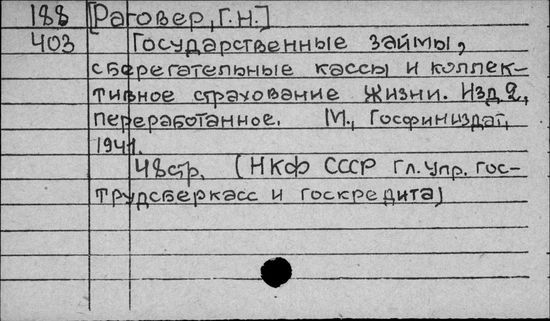 188 [Раговер, Г.Н.]
403 Государственные займы,
сберегательные кассы и коллек-
тивное страхование жизни. Изд 2,
переработанное. М., Госфиниздат,
1941.
48 стр. (НКФ СССР Гл. Упр. Гос-
трудсберкасс и госкредита)